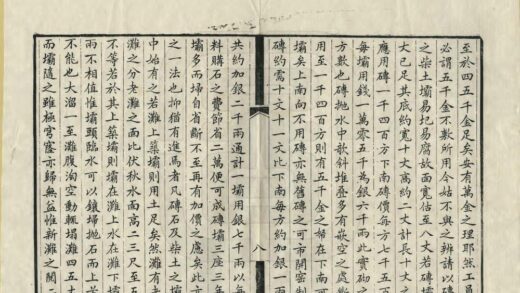 至於四五千金足矣安有萬金之理耶然工員
必謂五千金不敷所用今姑不與之辨請以磚
之柴土壩易圮易腐故面寬估至八丈若磚壩
丈已足其底約寬十丈高約二丈計長十丈之
應用磚一千四百方下南磚價每方七千五百
每壩用錢一萬零五千為銀六千兩此實砌之
方數也磚拋水中敧斜堆疊多有嵌空之處斷
用至一千四百方則有五千金之始在下南可
壩矣上南向不用磚亦無舊磚之可市開窰制
磚約需十文十一文比下南每方約加銀一百
八
共約加銀二千兩通計一壩用銀七千兩以每
料購石之費節省二萬便可成磚壩三座三年
壩多而埽自省斷不至再有加價之處矣此亦
之一法也抑猶有進焉者凡磚石及柴土之壩
中始有之若灘上築壩則用土足矣然灘有老
灘之分老灘之面比伏秋水面高二三尺至五
不等若於其上築壩則壩在灘上水在灘下壩
兩不相值惟壩頭臨水可以鑲埽拋石而上首
不能也大溜一至灘腹淘空動輒塌灘四五十
而壩隨之雖極穹窿亦歸無益惟新灘之間二